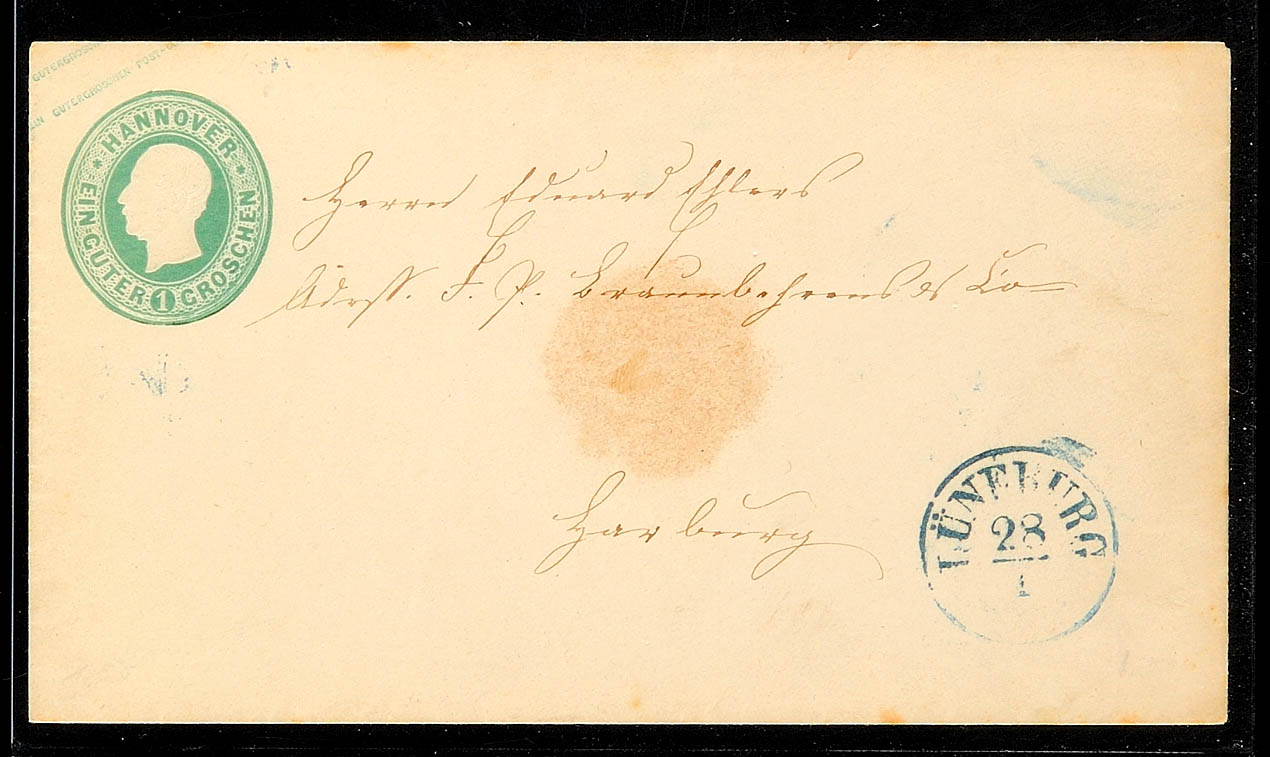 GUTERGROSCHEN
GUTERGROSCHEN POST-
HANNOVER
EIN GUTER 1 GROSCHEN
Herrn Eduard Ehlers
Adress. F. P. Braunbehrens & Co
Harburg
LÜNEBURG
28
1